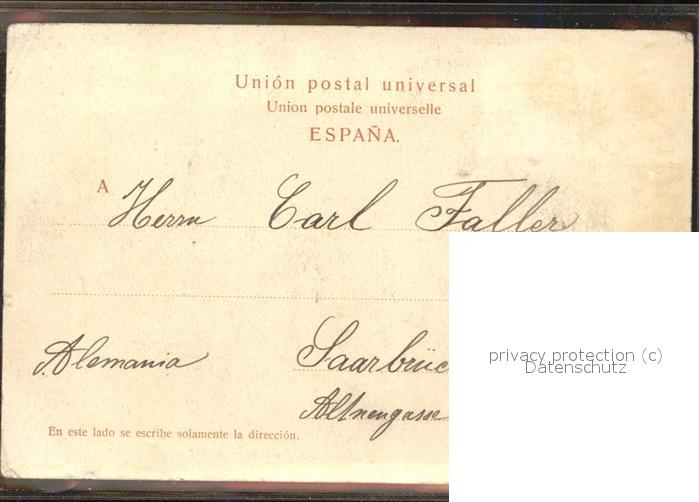 Unión postal universal
Union postale universelle
ESPAÑA.
A Herrn Carl Faller
Alemania Saarbrüc
Altnengasse
En este lado se escribe solamente la dirección.
privacy protection (c)
Datenschutz